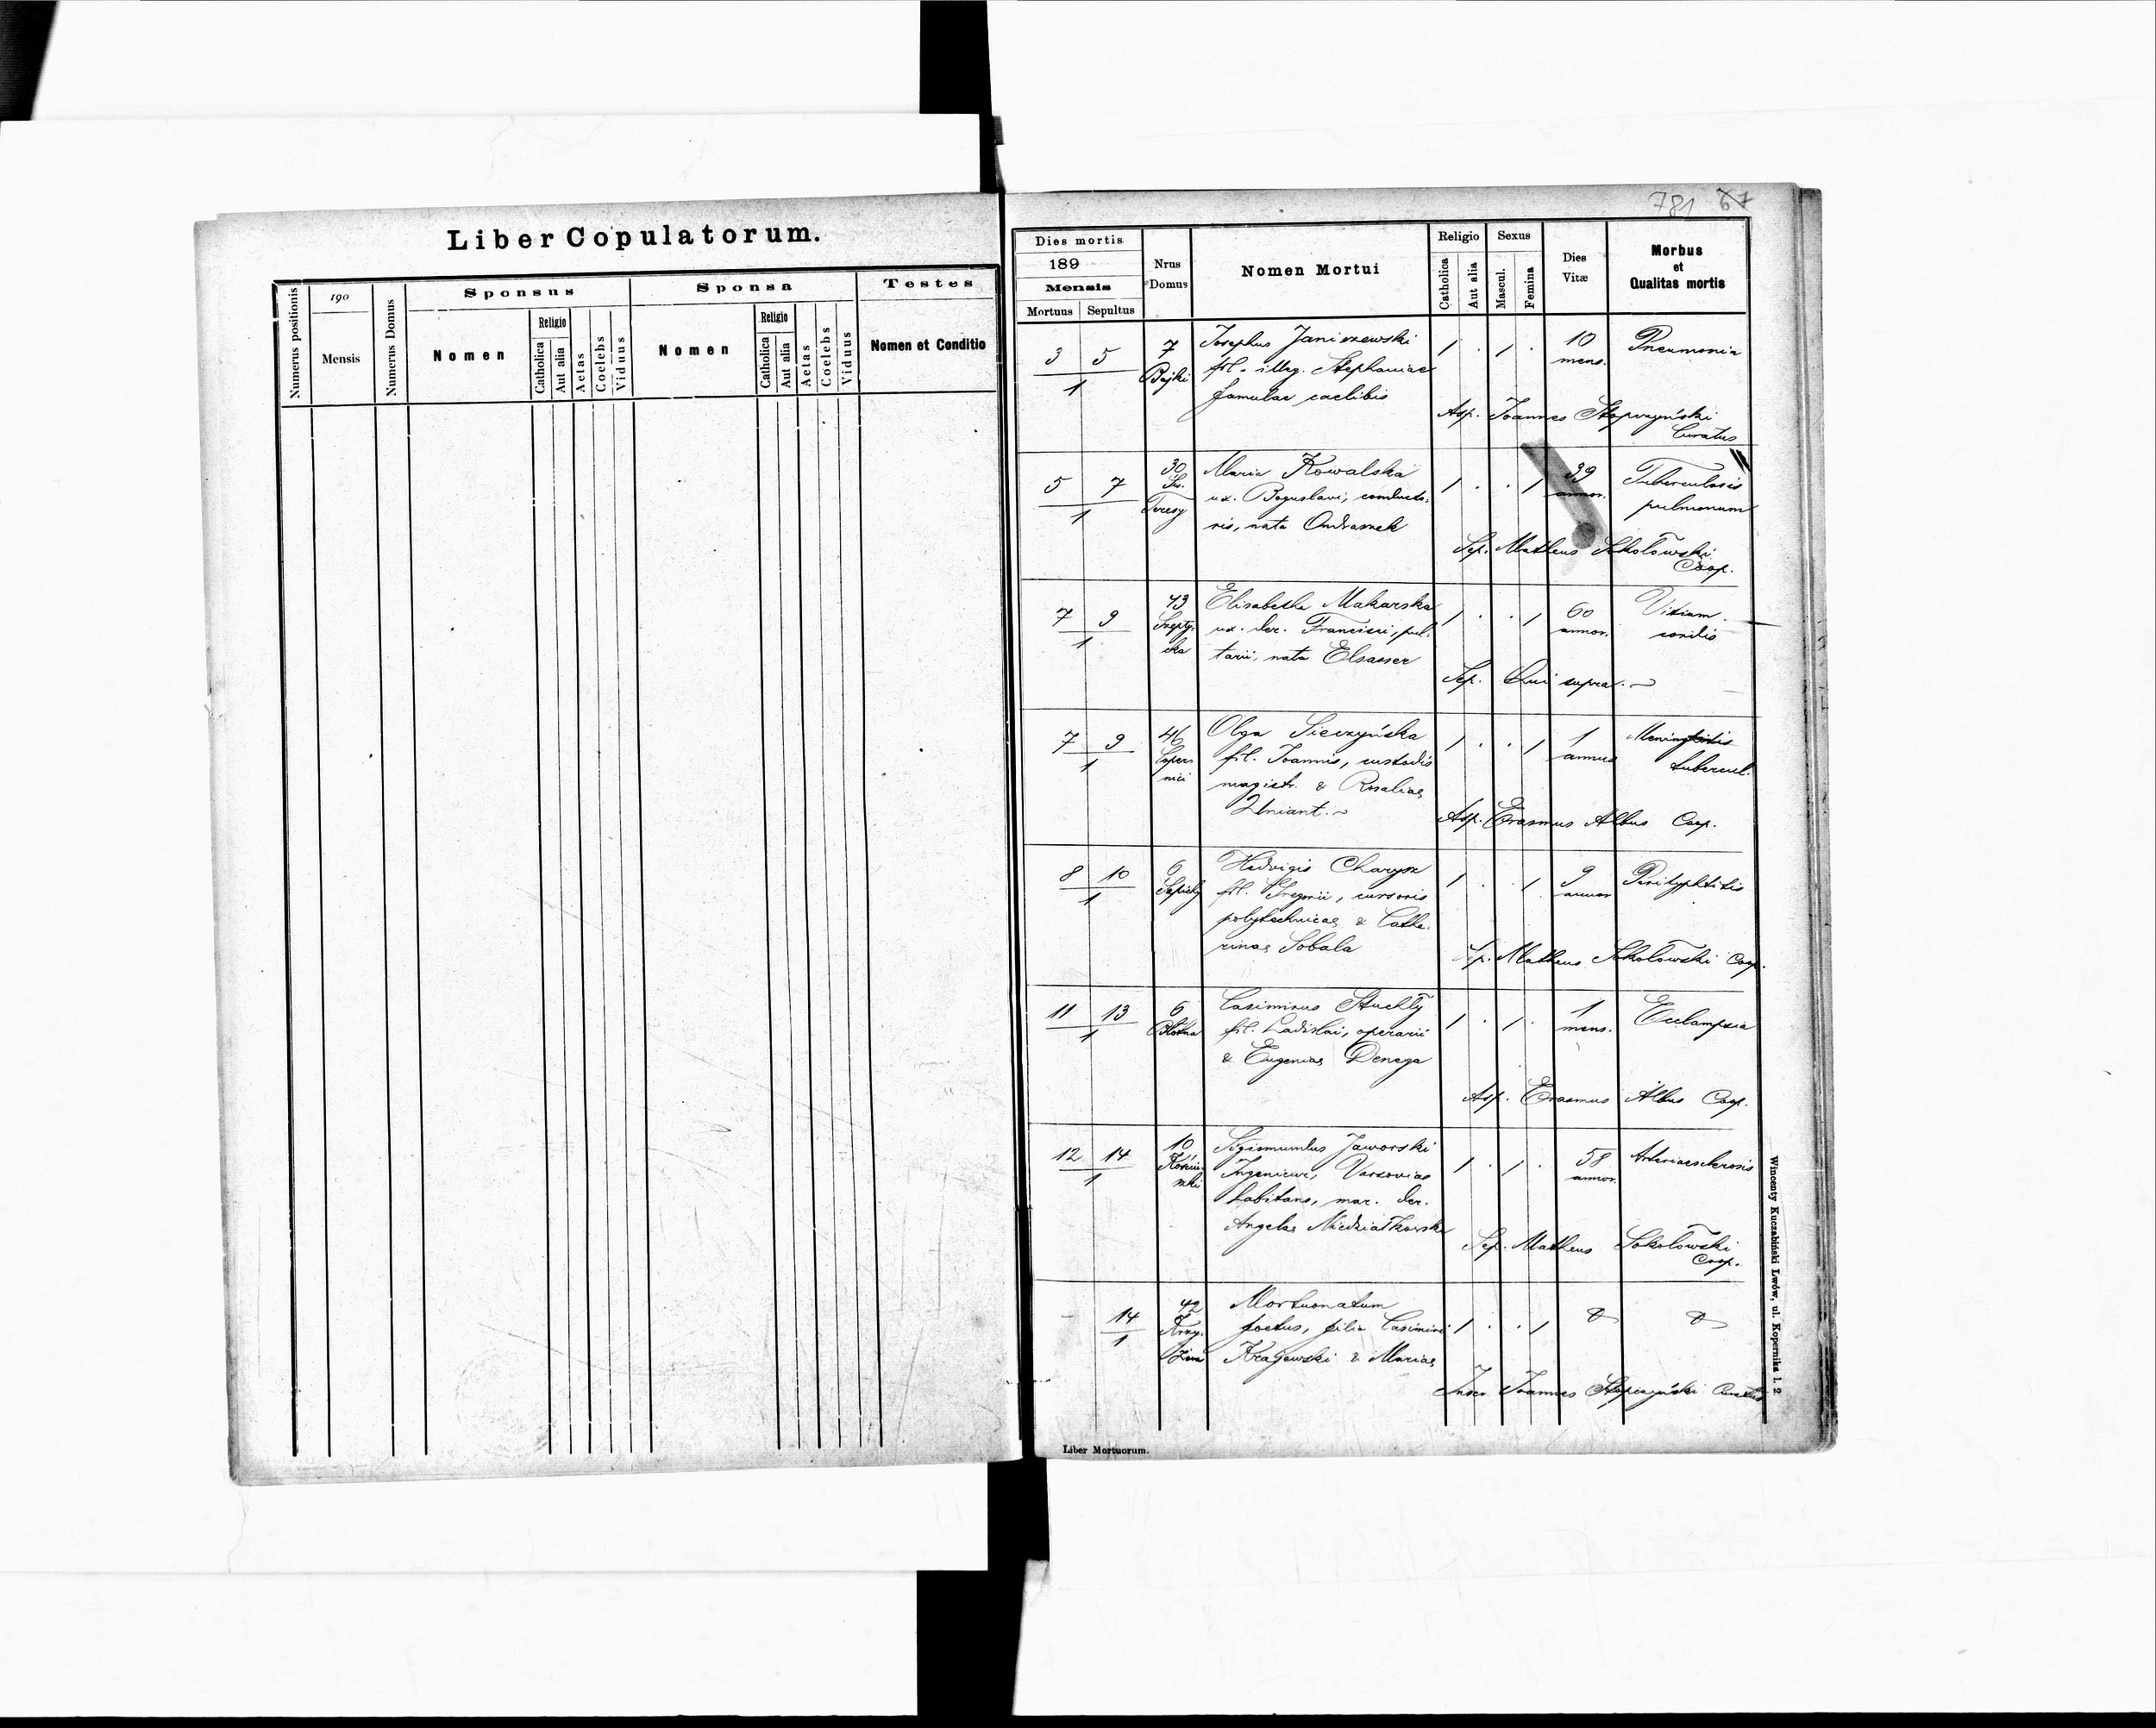 Liber Copulatorum.
Numerus positionis
190
Mensis
Numerus Domus
Sponsus
Nomen
Religio
Catholica
Aut alia
Aetas
Coelebs
Viduus
Sponsa
Nomen
Religio
Catholica
Aut alia
Aetas
Coelebs
Viduus
Testes
Nomen et Conditio
781 67
Dies mortis
189
Mensis
Mortuus Sepultus
Nrus
Domus
Nomen Mortui
Religio
Catholica
Aut alia
Sexus
Mascul.
Femina
Dies
Vitæ
Morbus
et
Qualitas mortis
3 5
1
7
Bajki
Josephus Janiszewski
fil. illeg. Stephaniae
famulae caelibis
1 . 1 .
10
mens.
Pneumonia
Asp. Joannes Stopczyński
Curatus
5 7
1
30
Św.
Teresy
Maria Kowalska
ux. Boguslavi, conducto-
ris, nata Ondraszek
1 . . 1
39
annor.
Tuberculosis
pulmonum
Sep. Matheus Sokołowski
Coop.
7 9
1
43
Szepty-
cka
Elisabetha Makarska
ux. der. Francisci,
tarii, nata Elsasser
1 . . 1
60
annor.
Vitium
cordis
Sep. Qui supra.
7 9
1
46
Coper-
nici
Olga Sieczyńska
fil. Joannis, custodis
magistr. & Rosaliae
Uniant.
1 . . 1
1
annus
Meningitis
tubercul.
Asp. Erasmus Albus Coop.
8 10
1
6
Sapiehy
Hedvigis Charysz
fil. Gregorii, cursoris
polytechnicae & Catha-
rinae Sobala
1 . . 1
9
annor
Perityphlitis
Sep. Matheus Sokołowski Coop.
11 13
1
6
Błotna
Casimirus Stuchlÿ
fil. Ladislai, operarii
& Eugeniae Denega
1 . 1 .
1
mens.
Eclampsia
Asp. Erasmus Albus Coop.
12 14
1
10
Sigismundus Jaworski
Ingenieur, Varsoviae
habitans, mar. der.
Angelae Niedziałkowska
1 . 1 .
58
annor.
Arteriaesclerosis
Sep. Matheus Sokołowski
Coop.
14
1
42
Krzy-
żowa
Mortuonatum
foetus, filia Casimiri
Krajewski & Mariae
1 . . 1
Inscr. Joannes Stopczyński Curatus
Liber Mortuorum.
Wincenty Kuczabiński Lwów, ul. Kopernika l. 2